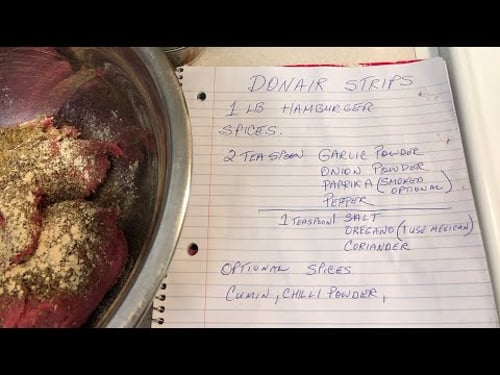 DONAIR STRIPS
1 LB HAMBURGER
SPICES.
2 TEASPOON GARLIC POWDER
ONION POWDER
PAPRIKA (SMOKED OPTIONAL)
PEPPER
1 TEASPOON SALT
OREGANO (I USE MEXICAN)
CORIANDER
OPTIONAL SPICES
CUMIN, CHILLI POWDER,